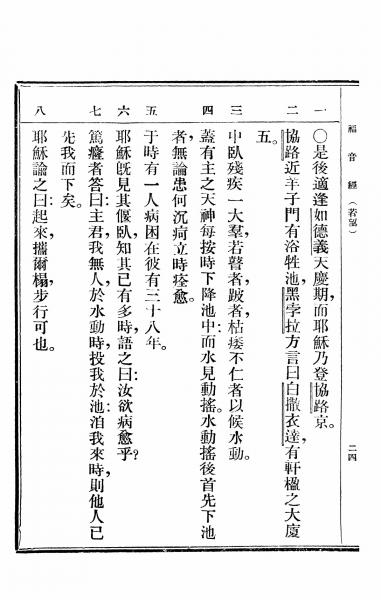 福音經（若望） 二四
一 〇是後適逢如德義天慶期,而耶穌乃登協路京。
二 協路近羊子門有浴牲池,黑孛拉方言曰白撒衣達,有軒楹之大廈
五。
三 中臥殘疾一大羣,若瞽者,跛者,枯痿不仁者以候水動。
四 蓋有主之天神每按時下降池中:而水見動搖。水動搖後首先下池
者,無論患何沉疴立時痊愈。
五 于時有一人病困在彼有三十八年。
六 耶穌旣見其偃臥,知其已有多時,語之曰:汝欲病愈乎?
七 篤癃者答曰:主君,我無人,於水動時,投我於池:洎我來時,則他人已
先我而下矣。
八 耶穌諭之曰:起來,攜爾榻,步行可也。